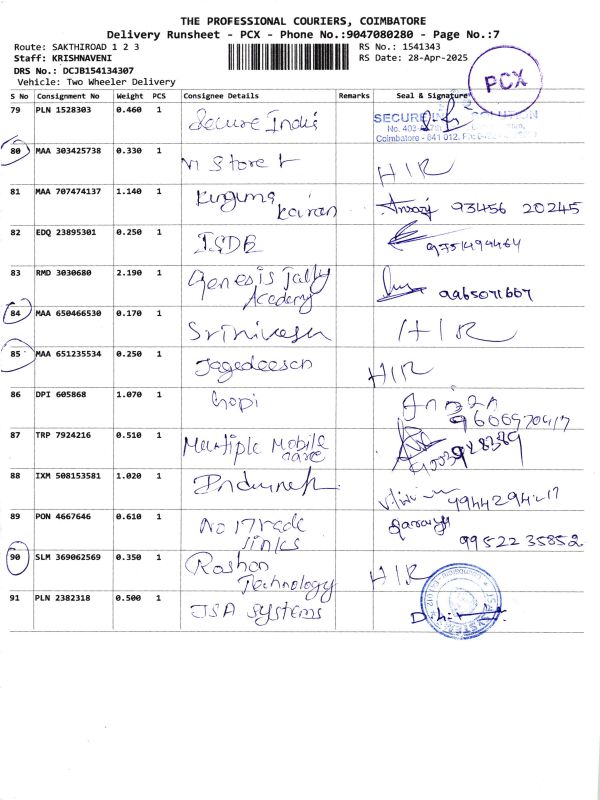 THE PROFESSIONAL COURIERS, COIMBATORE
Delivery Runsheet - PCX - Phone No.:9047080280 - Page No.:7
Route: SAKTHIROAD 1 2 3
RS No.: 1541343
Staff: KRISHNAVENI
RS Date: 28-Apr-2025
DRS No.: DCJB154134307
Vehicle: Two Wheeler Delivery
PCX
S No Consignment No Weight PCS Consignee Details Remarks Seal & Signature
79 PLN 1528303 0.460 1 Secure India
SECURE
No. 403
Coimbatore - 641 012.
80 MAA 303425738 0.330 1 M Store H/R
81 MAA 707474137 1.140 1 93456 20245
82 EDQ 23895301 0.250 1 ISDB 9751494464
83 RMD 3030680 2.190 1 Genesis Tally
Academy 9965071667
84 MAA 650466530 0.170 1 Srinivasan H/R
85 MAA 651235534 0.250 1 Jagedeesan H/R
86 DPI 605868 1.070 1 Gopi
87 TRP 7924216 0.510 1 Multiple Mobile
care
88 IXM 508153581 1.020 1
89 PON 4667646 0.610 1 Trade
links 99522 35852
90 SLM 369062569 0.350 1 Roshan
Technology H/R
91 PLN 2382318 0.500 1 JSA Systems